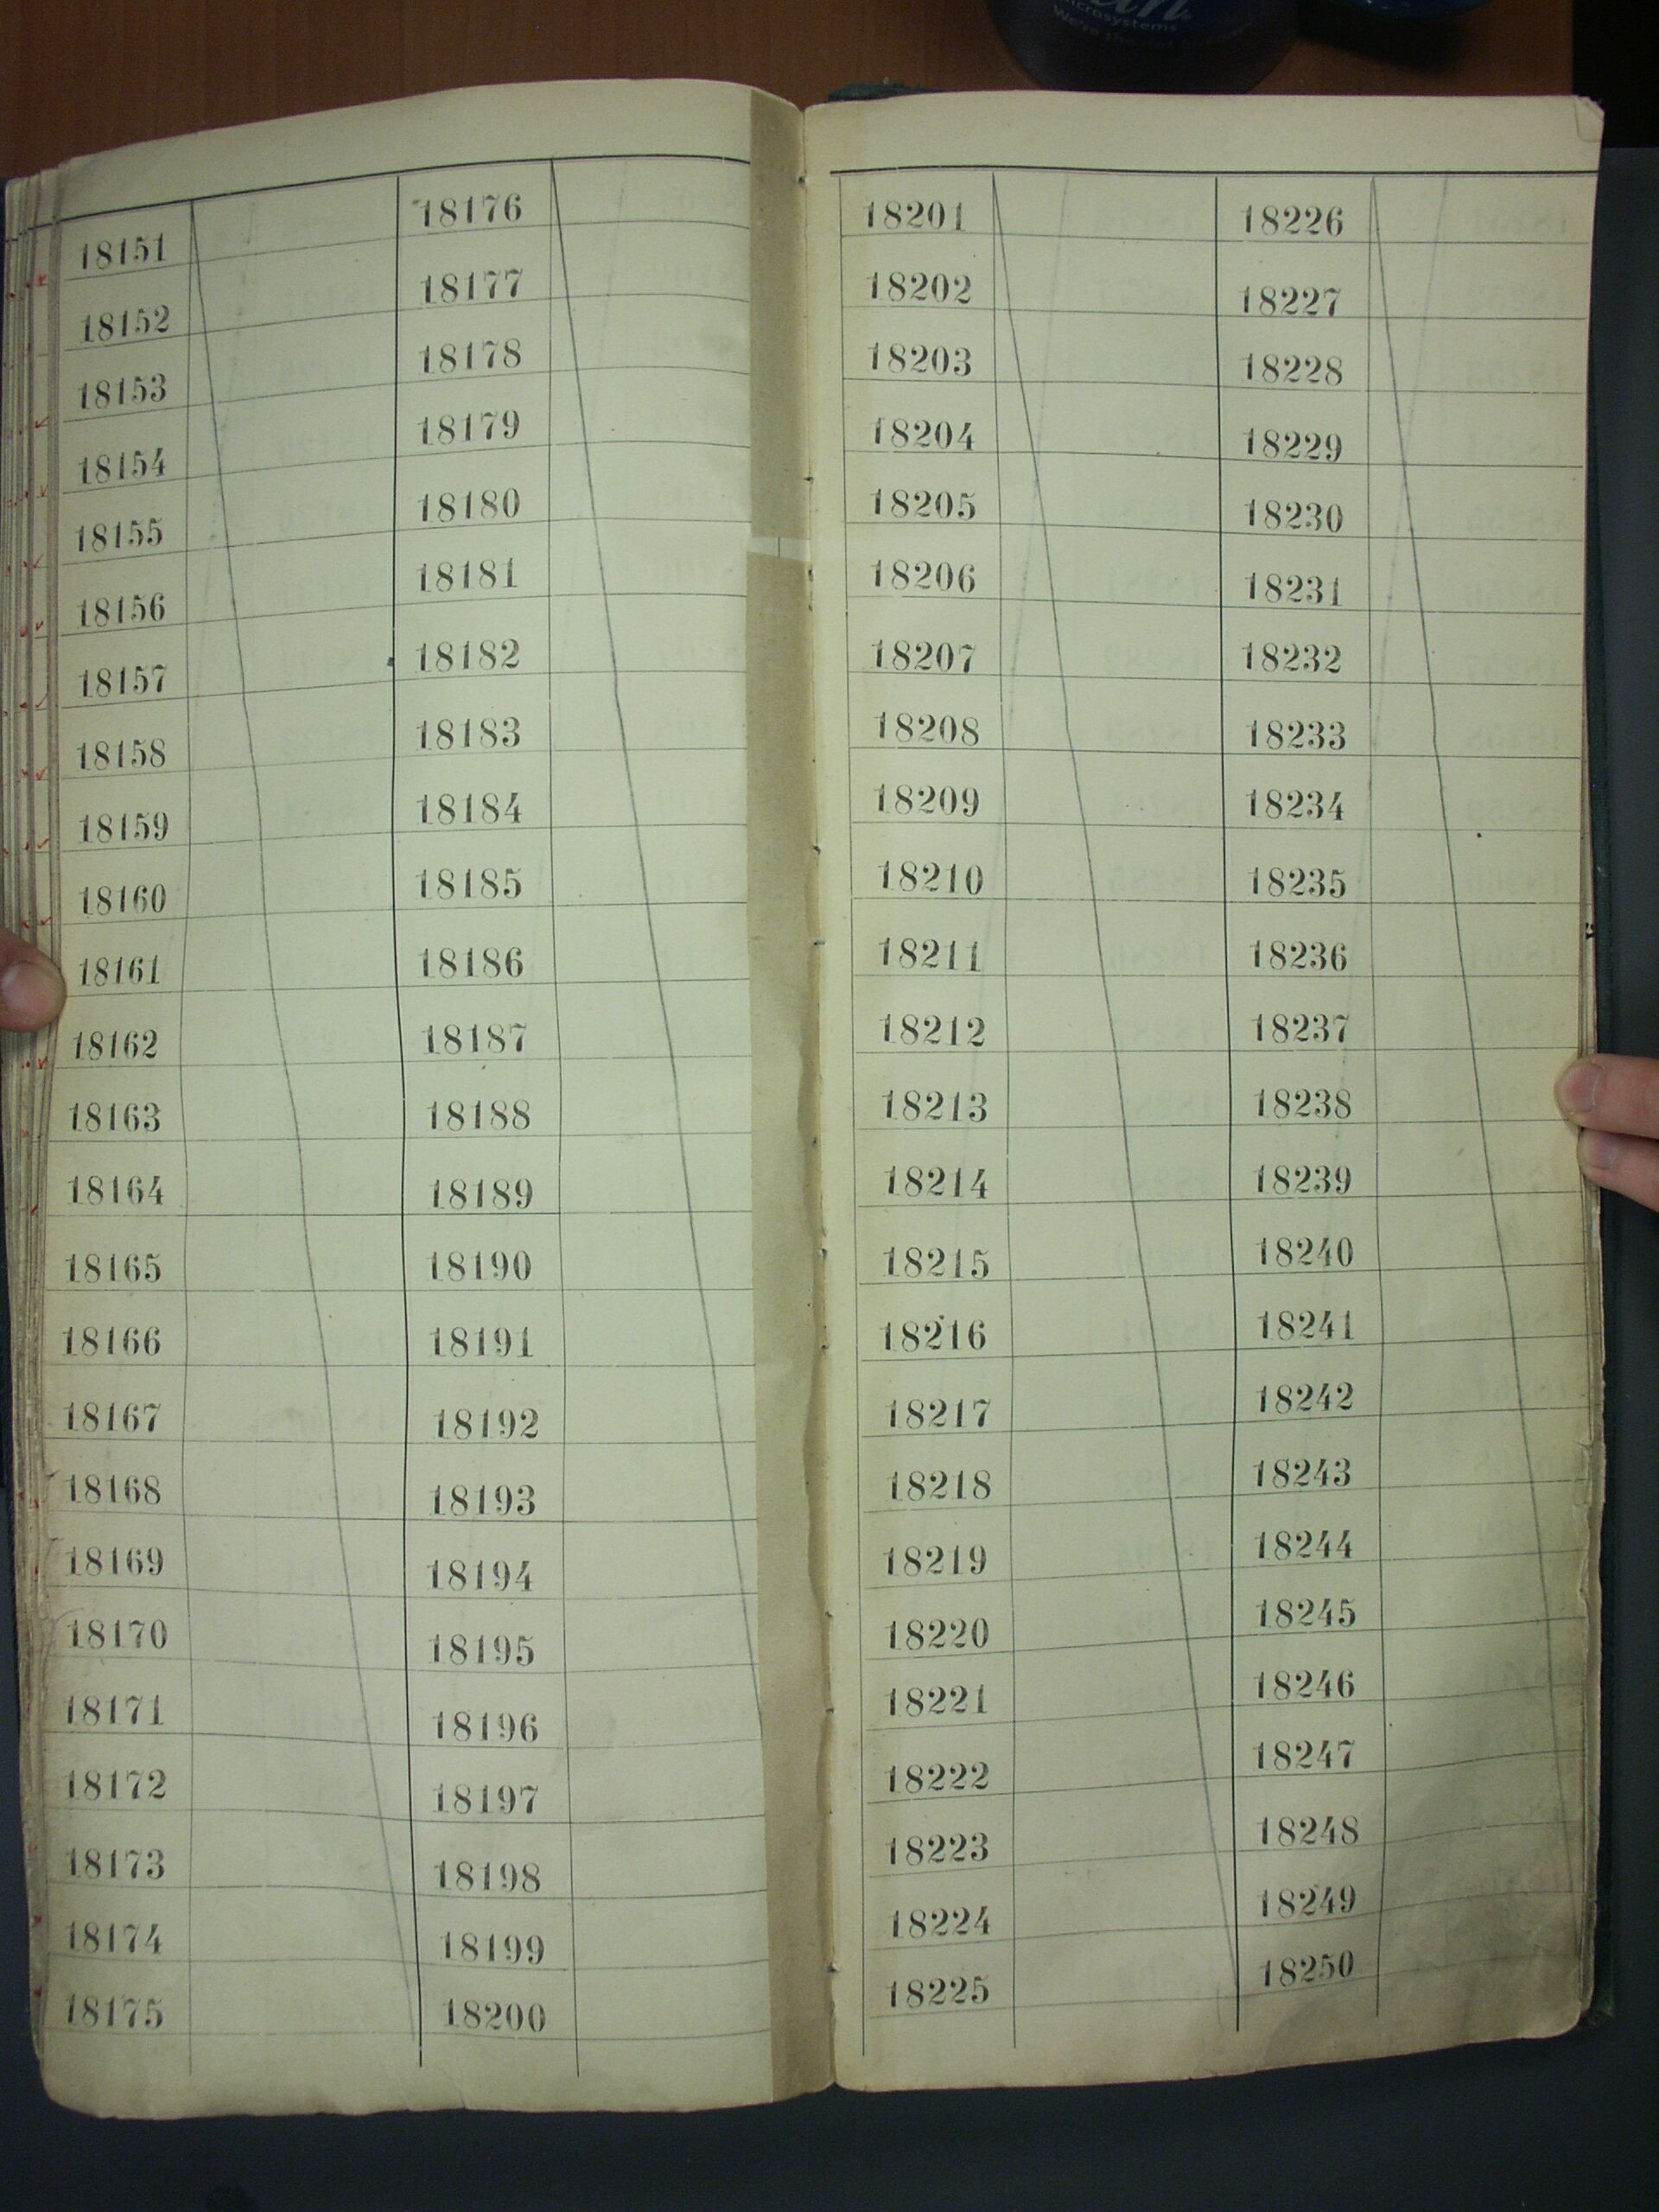 microsystems
18151
18152
18153
18154
18155
18156
18157
18158
18159
18160
18161
18162
18163
18164
18165
18166
18167
18168
18169
18170
18171
18172
18173
18174
18175
18176
18177
18178
18179
18180
18181
18182
18183
18184
18185
18186
18187
18188
18189
18190
18191
18192
18193
18194
18195
18196
18197
18198
18199
18200
18201
18202
18203
18204
18205
18206
18207
18208
18209
18210
18211
18212
18213
18214
18215
18216
18217
18218
18219
18220
18221
18222
18223
18224
18225
18226
18227
18228
18229
18230
18231
18232
18233
18234
18235
18236
18237
18238
18239
18240
18241
18242
18243
18244
18245
18246
18247
18248
18249
18250